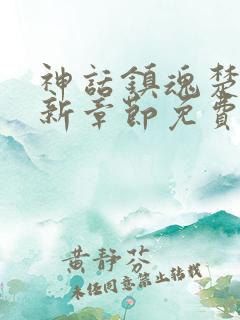 神話鎮魂楚
新章節免費
黄靜芬
未经同意禁止转载